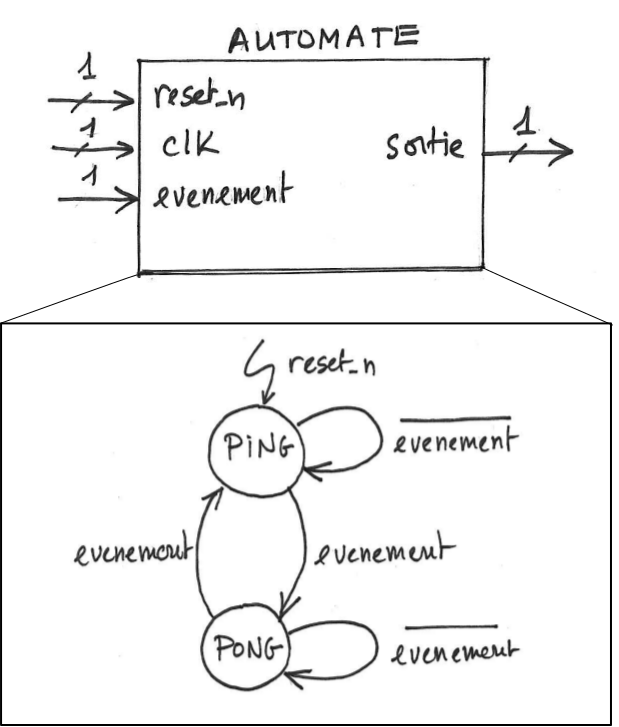 AUTOMATE
1
reset_n
1
clk
sortie
1
1
evenement
reset_n
PiNG
evenement
evenement
evenement
PONG
evenement